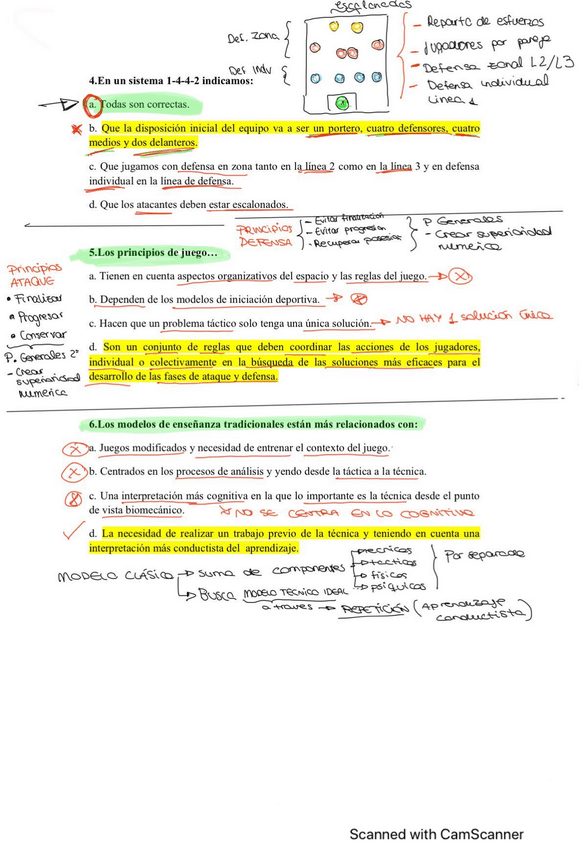 escalonados
- Reparto de esfuerzos
Def. zona
- Jugadores por pareja
- Defensa zonal L2/L3
Def Indv
- Defensa individual
Linea 1
4.En un sistema 1-4-4-2 indicamos:
a. Todas son correctas.
b. Que la disposición inicial del equipo va a ser un portero, cuatro defensores, cuatro
medios y dos delanteros.
c. Que jugamos con defensa en zona tanto en la línea 2 como en la línea 3 y en defensa
individual en la línea de defensa.
d. Que los atacantes deben estar escalonados.
PRINCIPIOS
DEFENSA
- Evitar finalización
- Evitar progresion
- Recuperar posesion
P Generales
- Crear superioridad
numerica
5.Los principios de juego…
Principios
ATAQUE
• Finalizar
• Progresar
• Conservar
P. Generales 2º
- Crear
superioridad
numerica
a. Tienen en cuenta aspectos organizativos del espacio y las reglas del juego.
b. Dependen de los modelos de iniciación deportiva.
c. Hacen que un problema táctico solo tenga una única solución. → NO HAY 1 solución única
d. Son un conjunto de reglas que deben coordinar las acciones de los jugadores,
individual o colectivamente en la búsqueda de las soluciones más eficaces para el
desarrollo de las fases de ataque y defensa.
6.Los modelos de enseñanza tradicionales están más relacionados con:
a. Juegos modificados y necesidad de entrenar el contexto del juego.
b. Centrados en los procesos de análisis y yendo desde la táctica a la técnica.
c. Una interpretación más cognitiva en la que lo importante es la técnica desde el punto
de vista biomecánico. NO SE CENTRA EN LO COGNITIVO
d. La necesidad de realizar un trabajo previo de la técnica y teniendo en cuenta una
interpretación más conductista del aprendizaje.
MODELO CLÁSICO → Suma de componentes
→ tecnicos
→ tacticos
→ físicos
→ psíquicos
Por separado
→ BUSCA MODELO TECNICO IDEAL
a traves → REPETICIÓN (Aprendizaje
conductista)
Scanned with CamScanner